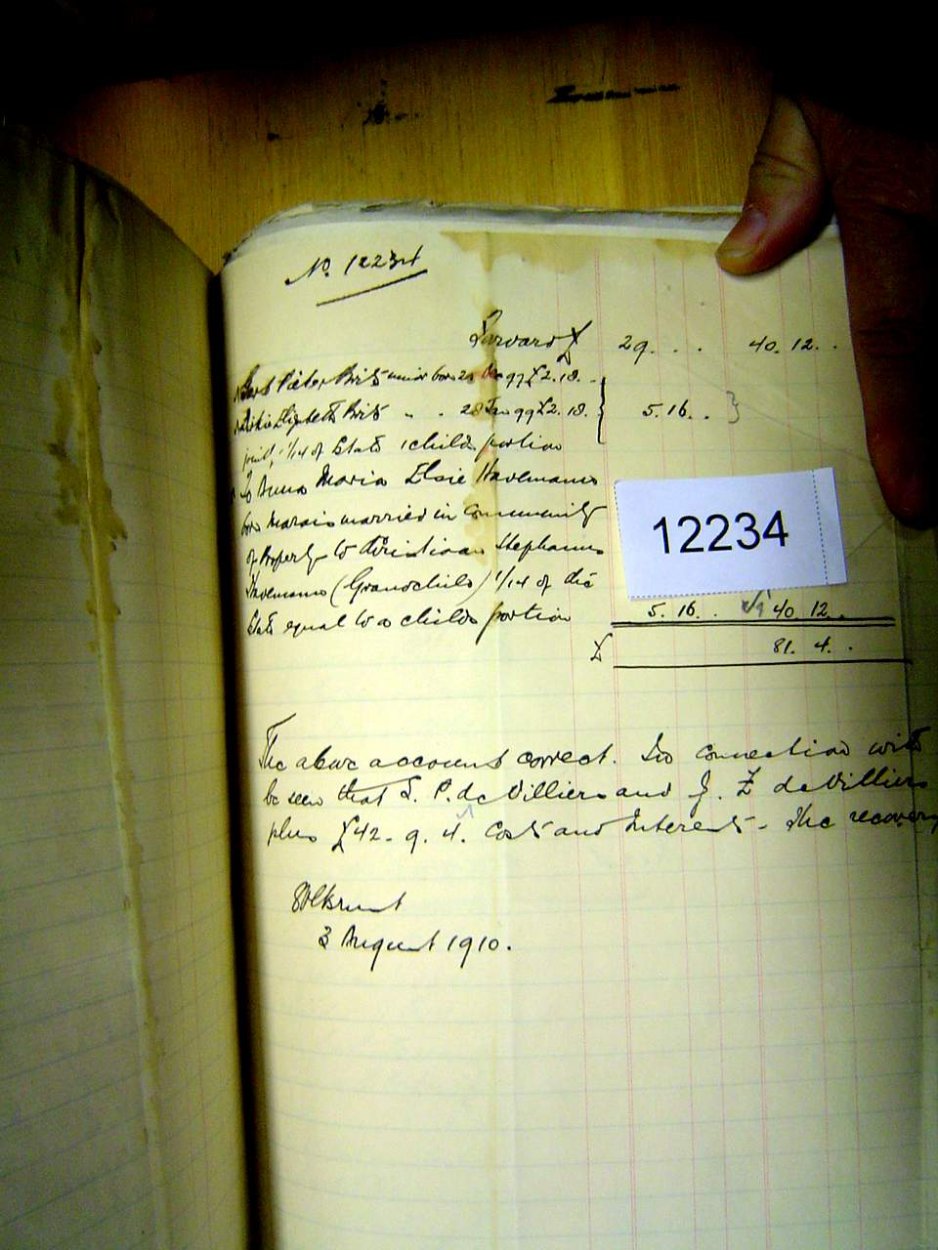 No. 12234
Forward £ 29. . . 40. 12. .
Pieter Brits minor born 20 Dec 97 £2.18. .
Elizabeth Brits " . 28 Jan 99 £2.18. 5. 16. .
1/14 of State 1 childs portion
To Anna Maria Elsie Havemann
born Marais married in Community
of Property to Christiaan Stephanus
Havemann (Grandchild) 1/14 of the
State equal to a childs portion 5. 16. . 40. 12. .
£ 81. 4. .
12234
The above account correct. In connection with
be seen that S. P. de Villiers and J. Z. de Villiers
plus £42. 9. 4. Costs and Interest - The recovery
Volksrust
3 August 1910.